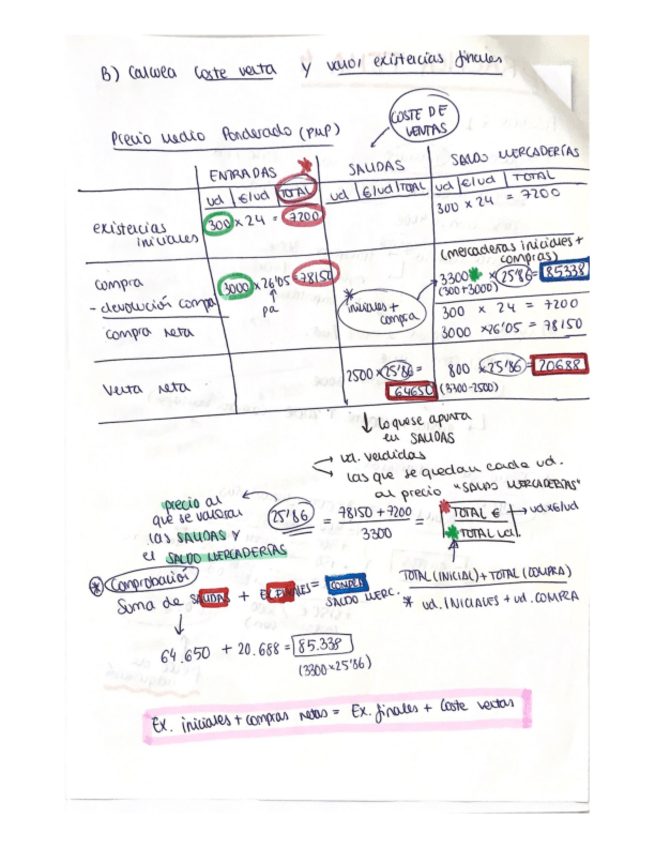 B) Calcula Coste venta y valor existencias finales
Precio Medio Ponderado (PMP)
COSTE DE
VENTAS
ENTRADAS * SALIDAS SALDO MERCADERÍAS
ud | €/ud | TOTAL ud | €/ud | TOTAL ud | €/ud | TOTAL
existencias
iniciales
300 x 24 = 7200
300 x 24 = 7200
compra
- devolución compra
compra neta
3000 x 26'05 = 78150
pa
*
iniciales +
compra
(mercaderas iniciales +
compras)
3300* x 25'86 = 85338
(300+3000)
300 x 24 = 7200
3000 x 26'05 = 78150
Venta neta
2500 x 25'86 =
64650
800 x 25'86 = 20688
(3300-2500)
↓ lo que se apunta
en SALIDAS
→ ud. vendidas
→ las que se quedan cada ud.
al precio "SALDO MERCADERÍAS"
precio al
que se valoran
las SALIDAS y
el SALDO MERCADERÍAS
25'86 = 78150 + 7200 / 3300 = * TOTAL € / * TOTAL ud. → ud x €/ud
* Comprobación
Suma de SALIDAS + EX.FINALES = COMPRA
SALDO MERC.
TOTAL (INICIAL) + TOTAL (COMPRA)
* ud. INICIALES + ud. COMPRA
64.650 + 20.688 = 85.338
(3300 x 25'86)
Ex. iniciales + compras netas = Ex. finales + Coste ventas